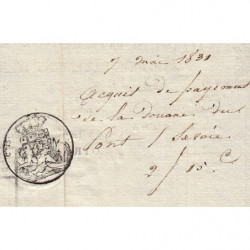 7 mai 1831
acquit de payement
de la douane du
Pont / Savoie
9 / 15 C